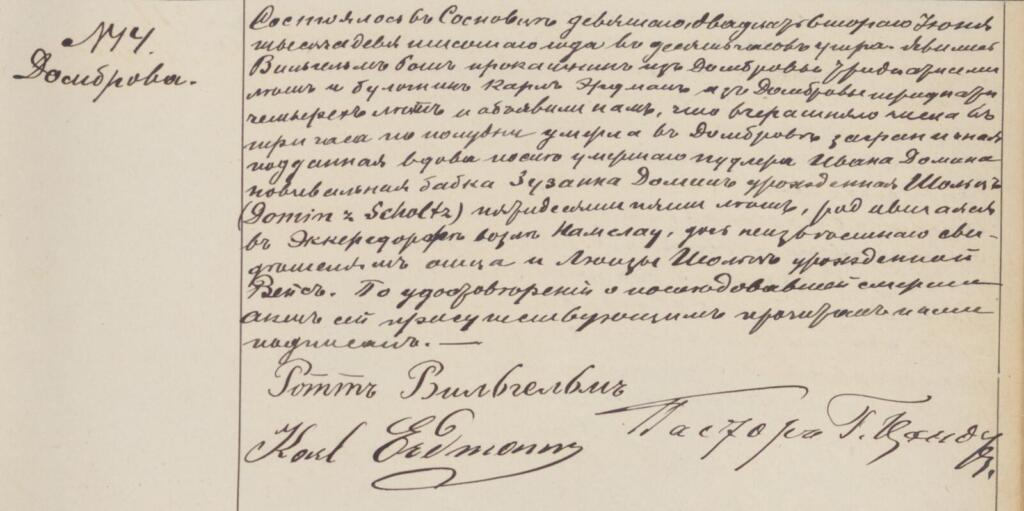 №14.
Домброва.
Состоялось въ Сосновицѣ девятаго, двадцать втораго Іюня
тысяча девятисотаго года въ десять часовъ утра. Явились
Вильгельмъ приказчикъ изъ Домбровы тридцати семи
лѣтъ и Карлъ Эрдманъ изъ Домбровы тридцати
четырехъ лѣтъ и объявили намъ, что вчерашняго числа въ
три часа по полудни умерла въ Домбровѣ заграничная
подданная вдова послѣ умершаго пудлера Ивана Домина
повивальная бабка Зузанна Доминъ урожденная Шольцъ
(Domin z Scholtz) пятидесяти пяти лѣтъ, родившаяся
въ Эккерсдорфѣ возлѣ Намслау, дочь неизвѣстнаго сви-
дѣтелямъ отца и Луизы Шольцъ урожденной
Вейсъ. По удостовѣреніи о послѣдовавшей смерти
актъ сей присутствующимъ прочитанъ нами
подписанъ. —
Роттъ Вильгельмъ
Karl Erdmann
Пасторъ Г.